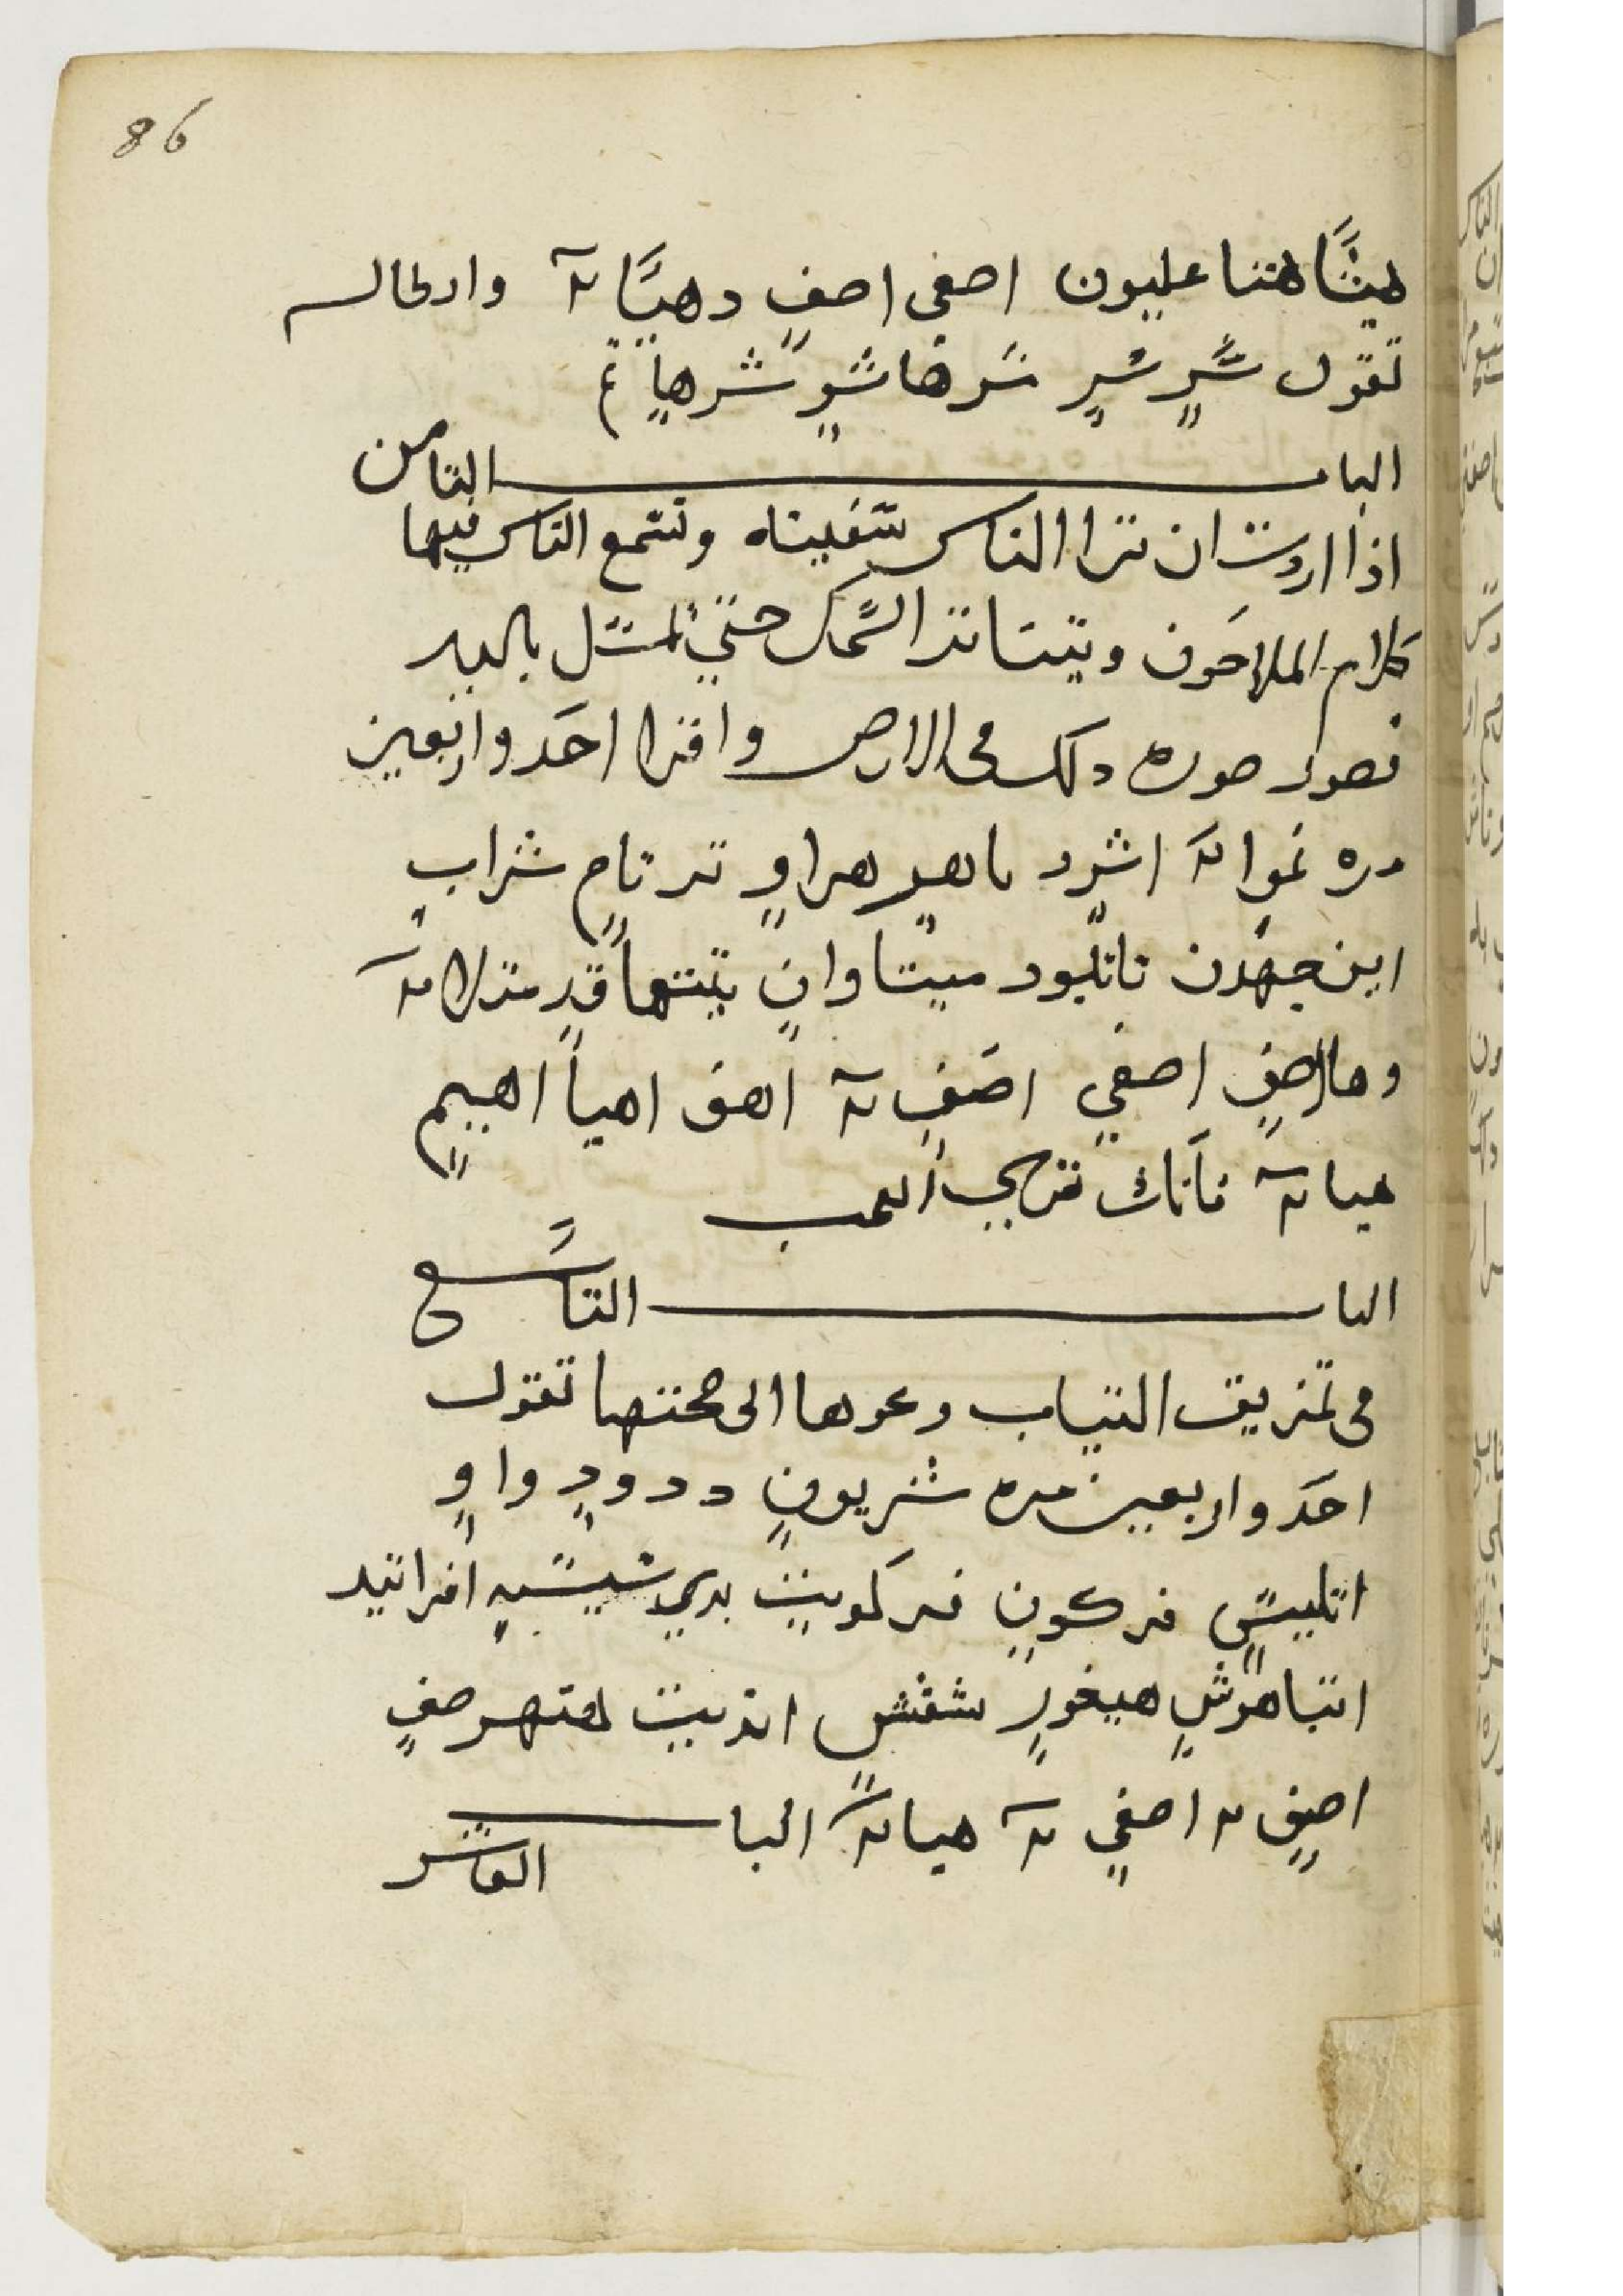 86
هيثًا هتنا عليون اصفي اصفٍ دهيَّا ٣ وابطاله
تقول شَرٍ سُرٍ سَرها شوٍ شرهاٍ تم
الباب الثامن
اذا اردت ان ترا الناس سفينه وتسمع الناس فيها
كلام الملاحون ويتناثر السمك حتي تمسك باليد
فصور صوره دلك في الارض واقرا احد واربعين
مره غوا ٣ اشرد ماهيٍ هراوٍ ترتاحٍ شرابٍ
اين جهدن تاتلبود ميتا وانٍ يمتها قدٍ متلا ٣
وهااصفٍ اصفيٍ اصفٍ ٣ اهف اهيا اهييمٍ
هيا ٣ فانك تري العجب
الباب التاسع
في تمزيق الثياب وعودها الى صحتها تقول
احد واربعين مره شريونٍ ددودٍ واوٍ
اتليسٍ فركونٍ فركويت بدي شيشبهٍ افراتيد
انتباهوشٍ هيغورٍ شفشٍ اندبيت لهتهر صفٍ
اصفٍ ٣ اصفيٍ ٣ هيا ٣ الباب
العاشر